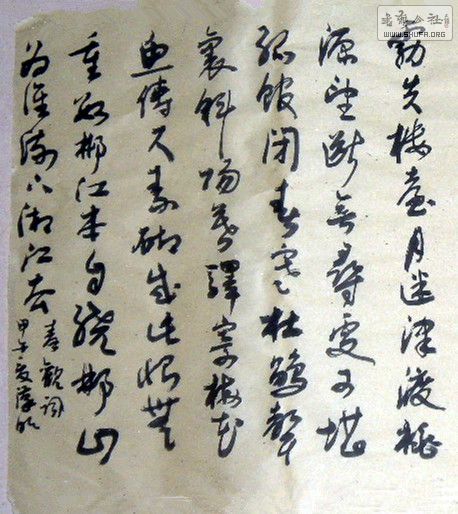 書藝公社
WWW.SHUFA.ORG
霧失樓臺月迷津渡桃
源望斷無尋處可堪
孤館閉春寒杜鵑聲
裏斜陽暮驛寄梅花
魚傳尺素砌成此恨無
重數郴江本自繞郴山
為誰流下湘江去
秦觀詞
甲午夏